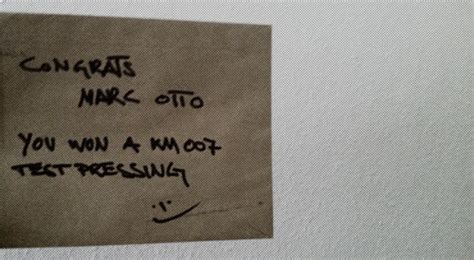 CONGRATS
MARC OTTO
YOU WON A KM007
TEST PRESSING